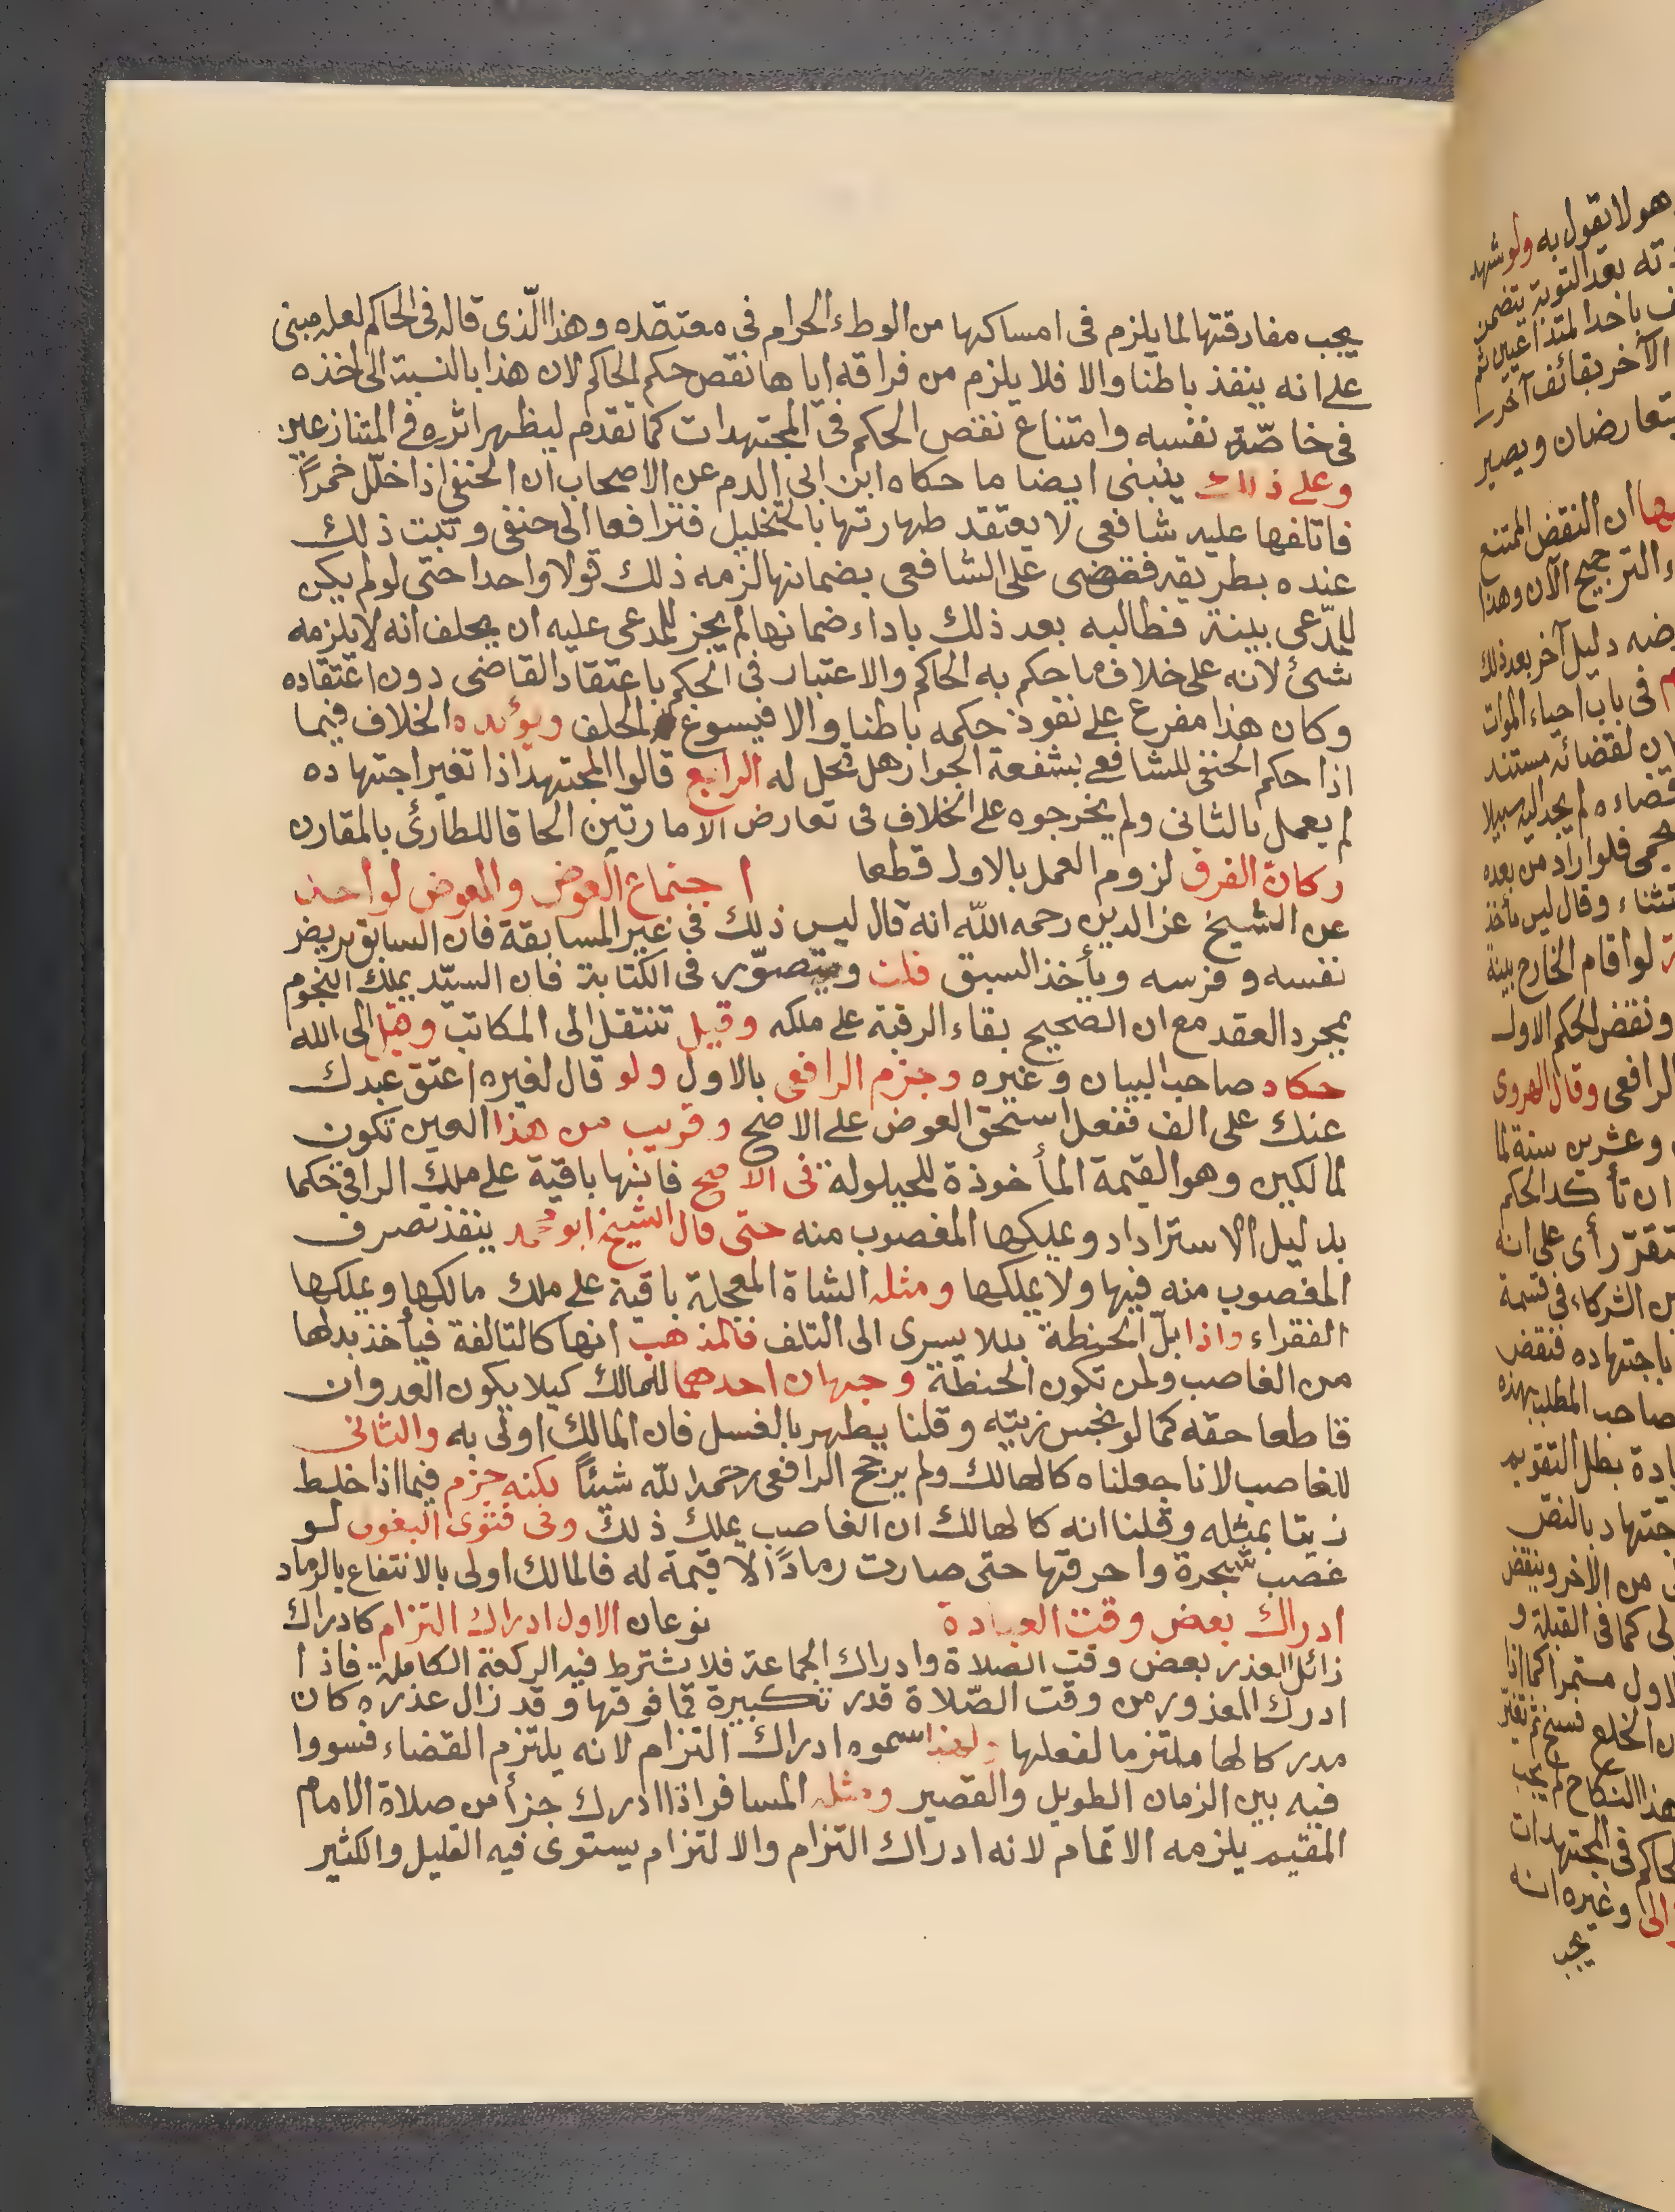 يجب مفارقتها لما يلزم فى امساكها من الوطء الحرام فى معتقده وهذا الّذى قاله فى الحاكم لعله مبنى
على انه ينفذ باطنا والا فلا يلزم من فراقه اياها نقض حكم الحاكم لان هذا بالنسبة الى اخذه
فى خاصّة نفسه وامتناع نقض الحكم فى المجتهدات كما تقدم ليظهر اثره فى المتنازعين
وعلى ذلك ينبنى ايضا ما حكاه ابن ابى الدم عن الاصحاب ان الحنفى اذا خلّل خمراً
فاتلفها عليه شافعى لا يعتقد طهارتها بالتخليل فترافعا الى حنفى وثبت ذلك
عنده بطريقه فقضى على الشافعى بضمانها لزمه ذلك قولا واحدا حتى لو لم يكن
للمدّعى بينة فطالبه بعد ذلك باداء ضمانها لم يجز للمدعى عليه ان يحلف انه لا يلزمه
شئ لانه على خلاف ما حكم به الحاكم والاعتبار فى الحكم باعتقاد القاضى دون اعتقاده
وكان هذا مفرع على نفوذ حكمه باطنا والا فيسوغ الحلف ويؤيده الخلاف فيما
اذا حكم الحنفى للشافعى بشفعة الجوار هل تحل له الرابع قالوا المجتهد اذا تغير اجتهاده
لم يعمل بالثانى ولم يخرجوه على الخلاف فى تعارض الامارتين الحاقا للطارئ بالمقارن
وكان الفرق لزوم العمل بالاول قطعا اجتماع العوض والمعوض لواحد
عن الشيخ عز الدين رحمه الله انه قال ليس ذلك فى غير المسابقة فان السابق يريض
نفسه وفرسه ويأخذ السبق قلت ويتصوّر فى الكتابة فان السيّد يملك النجوم
بمجرد العقد مع ان الصحيح بقاء الرقبة على ملكه وقيل تنتقل الى المكاتب وقيل الى الله
حكاه صاحب البيان وغيره وجزم الرافعى بالاول ولو قال لغيره اعتق عبدك
عنك على الف ففعل استحق العوض على الاصح وقريب من هذا العين تكون
لمالكين وهو القيمة المأخوذة للحيلولة فى الاصح فانها باقية على ملك الراقى حكما
بدليل الاسترداد ويملكها المغصوب منه حتى قال الشيخ ابو محمد ينفذ تصرف
المغصوب منه فيها ولا يملكها ومثله الشاة المعجلة باقية على ملك مالكها ويملكها
الفقراء واذا بلّ الحنطة بللا يسرى الى التلف فالمذهب انها كالتالفة فيأخذ بدلها
من الغاصب ولمن تكون الحنطة وجهان احدهما للمالك كيلا يكون العدوان
قاطعا حقه كما لو نجس زيته وقلنا يطهر بالغسل فان المالك اولى به والثانى
للغاصب لانا جعلناه كالهالك ولم يرجح الرافعى رحمه الله شيئاً لكنه جزم فيما اذا خلط
زيتا بمثله وقلنا انه كالهالك ان الغاصب يملك ذلك وفى فتوى البغوى لو
غصب شجرة واحرقها حتى صارت رماداً لا قيمة له فالمالك اولى بالانتفاع بالرماد
ادراك بعض وقت العبادة نوعان الاول ادراك التزام كادراك
زائل العذر بعض وقت الصلاة وادراك الجماعة فلا يشترط فيه الركعة الكاملة فاذا
ادرك المعذور من وقت الصّلاة قدر تكبيرة فما فوقها وقد زال عذره كان
مدركا لها ملتزما لفعلها ولهذا سموه ادراك التزام لانه يلتزم القضاء فسووا
فيه بين الزمان الطويل والقصير ومثله المسافر اذا ادرك جزأ من صلاة الامام
المقيم يلزمه الاتمام لانه ادراك التزام والالتزام يستوى فيه القليل والكثير
هو لا يقول به ولو شهد
بعد التوبة يتضمن
الآخر بقائف آخر
يتعارضان ويصير
ان النقض الممتنع
الترجيح الآن وهذا
دليل آخر بعد ذلك
فى باب احياء الموات
لقضائه مستند
لم يجد اليه سبيلا
فلو اراد من بعده
وقال ليس يأخذ
لو اقام الخارج بينة
ونقض الحكم الاول
الرافعى وقال الهروى
وعشرين سنة لما
ان تأكد الحكم
رأى على انه
الشركاء فى قسمة
باجتهاده فنقض
صاحب المطلب بهذه
بطل التقويم
بالنص
من الآخر وينقض
كما فى القبلة و
مستمرا كما اذا
الخلع فسخ ثم تغير
النكاح لم يجب
فى المجتهدات
وغيره انه
يجب